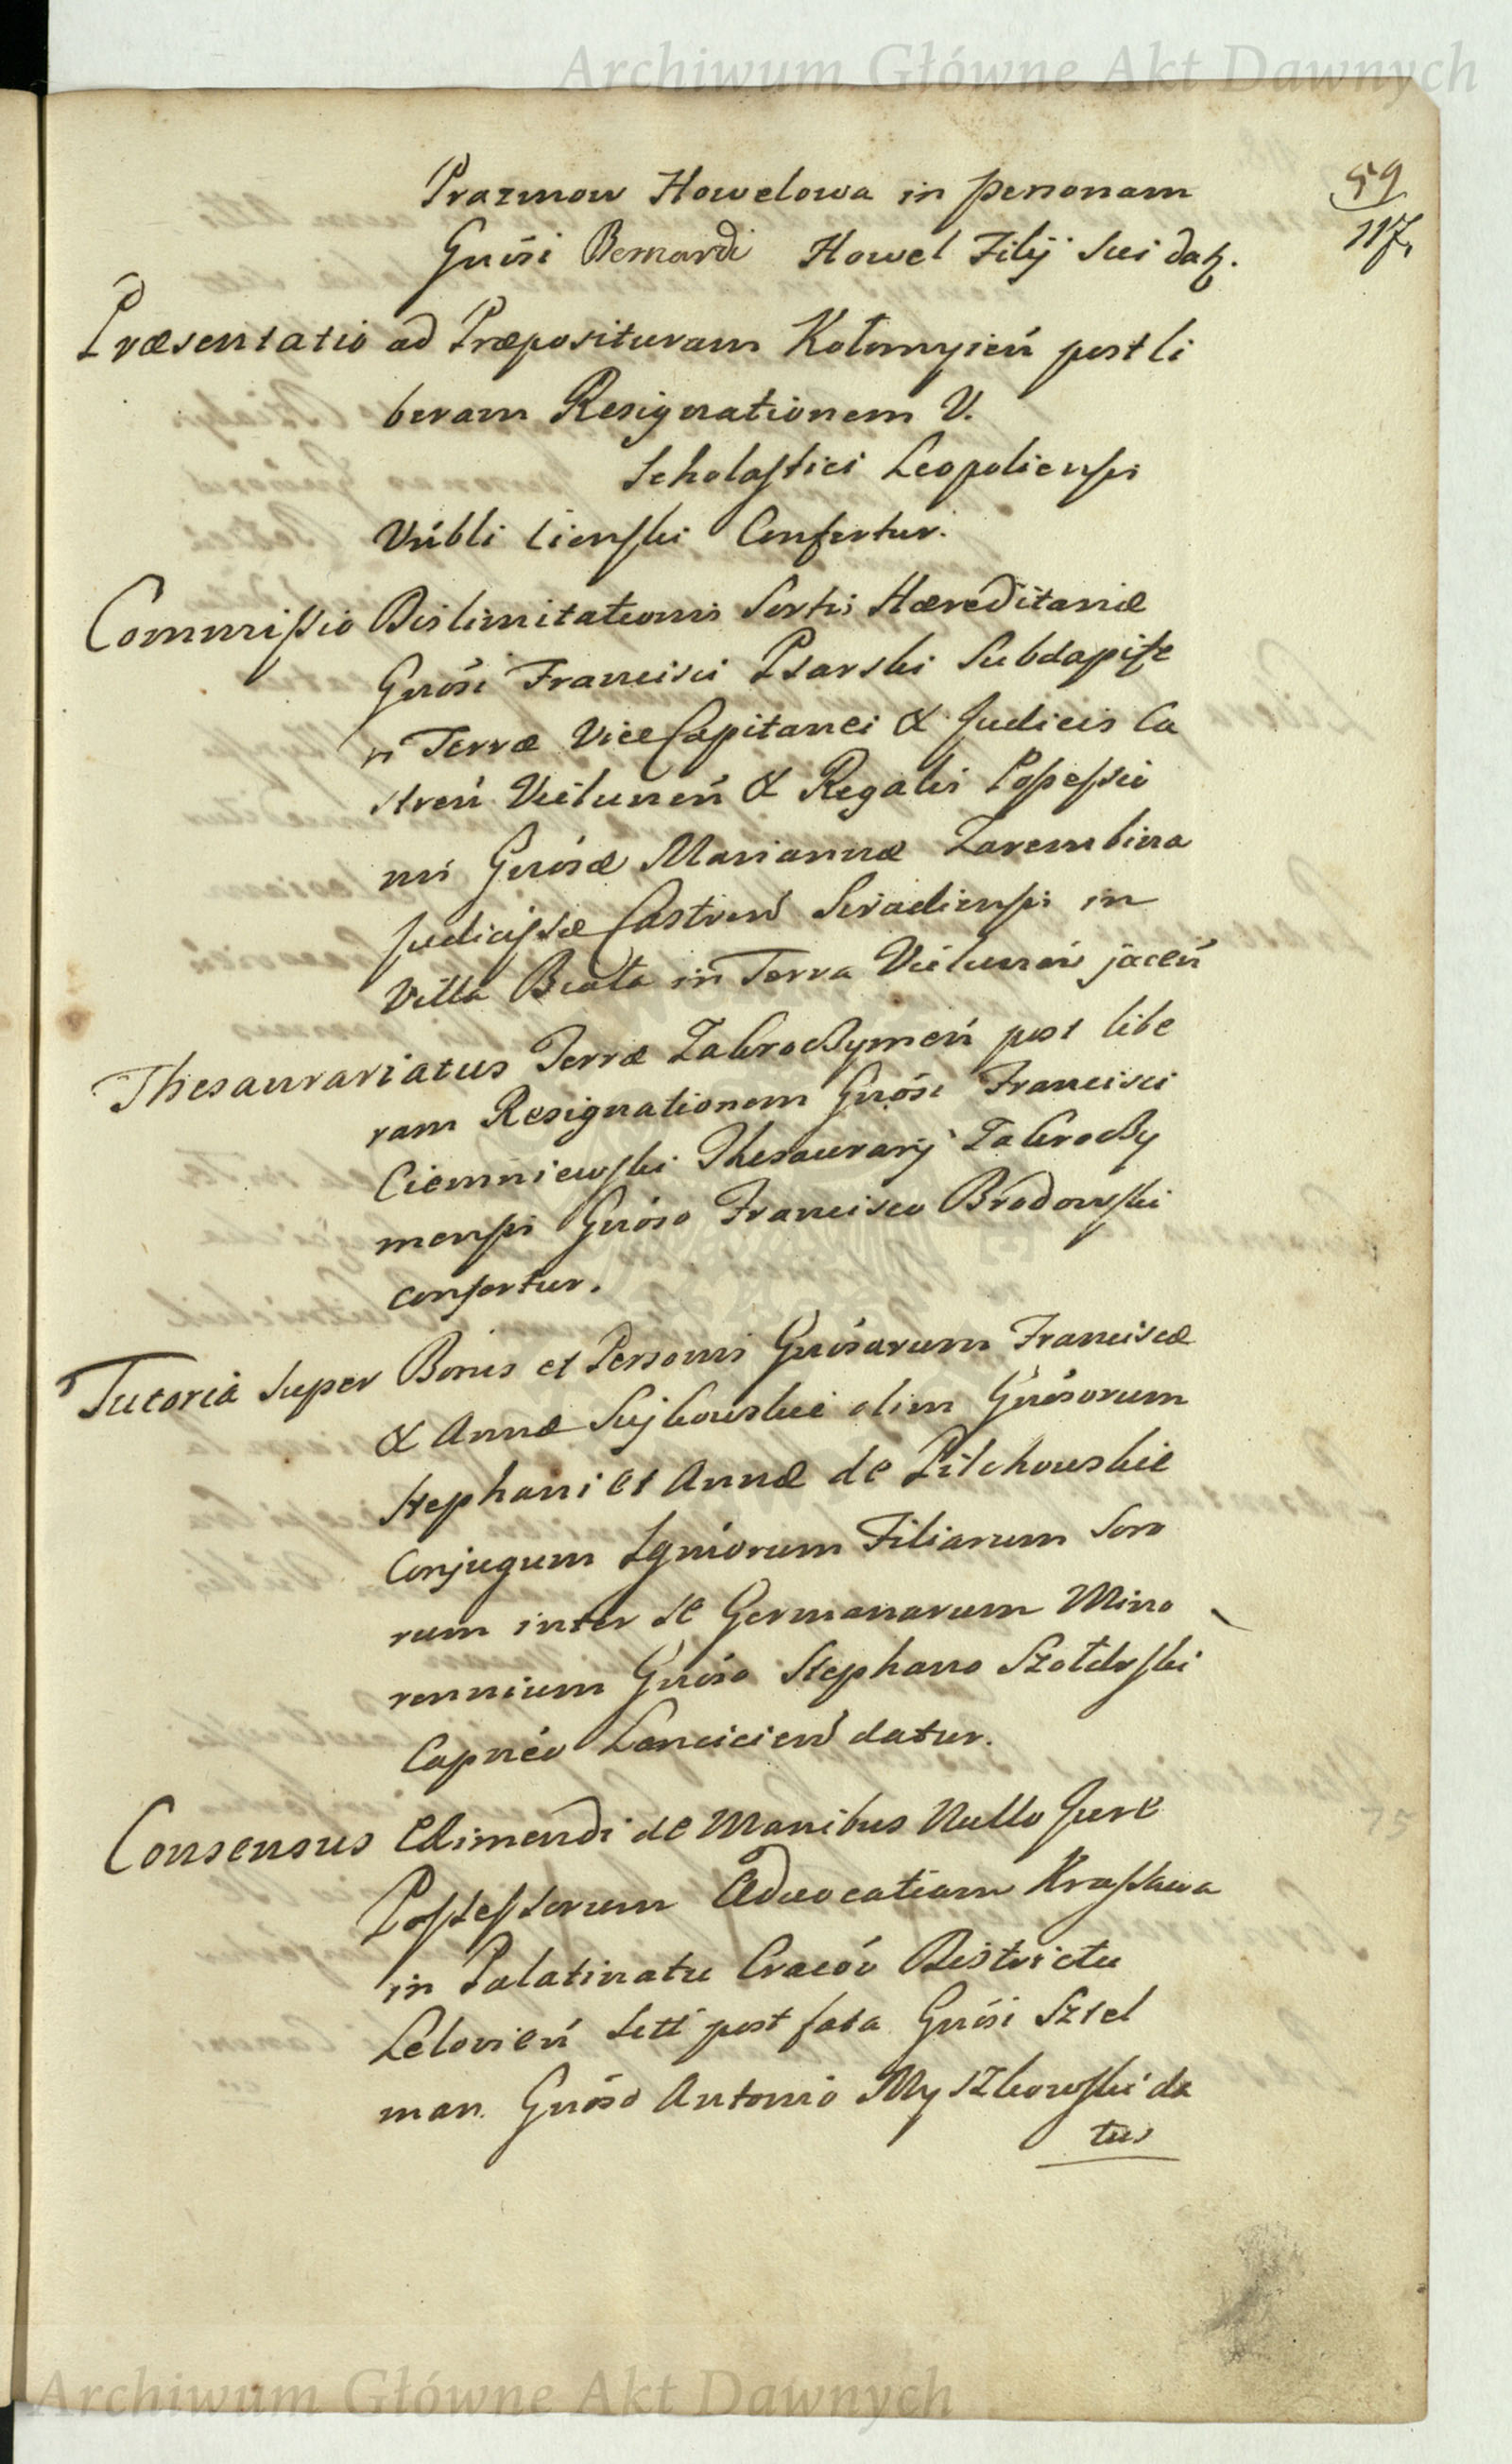 Archiwum Główne Akt Dawnych
59
117.
Prazmow Howelowa in personam
Gnósi Bernardi Howel Filij Sui datȝ.
Præsentatio ad Præposituram Kołomyień post li
beram Resignationem V.
Scholastici Leopoliensis
Vńbli Lienski Confertur.
Commissio Dislimitationis Sortis Hæreditariæ
Gnósi Francisci Psarski Subdapife
ri Terræ Vice Capitanei & Judicis Ca
streń Vieluneń & Regalis Possessio
nis Gnósæ Mariannæ Zarembina
Judicissæ Castreń Siradiensis in
Villa Biała in Terra Vieluneń jaceń
Thesaurariatus Terræ Zakroczymeń post libe
ram Resignationem Gnósi Francisci
Ciemniewski Thesaurarij Zakroczy
mensis Gnóso Francisco Brodowski
confertur.
Tutoria super Bonis et Personis Gnósarum Franciscæ
& Annæ Sujkowskie olim Gnósorum
Stephani et Annæ de Pilchowskie
Conjugum Lgniorum Filiarum Soro
rum inter se Germanarum Mino
rennium Gnóso Stephano Szołdrski
Capnéo Lanicień datur.
Consensus Eximendi de Manibus Nullo Jure
Possessorum Advocatiam Krassawa
in Palatinatu Cracóv Districtu
Lelovień sett post fata Gnósi Sztel
man. Gnóso Antonio Myszkowski da
tus
Archiwum Główne Akt Dawnych